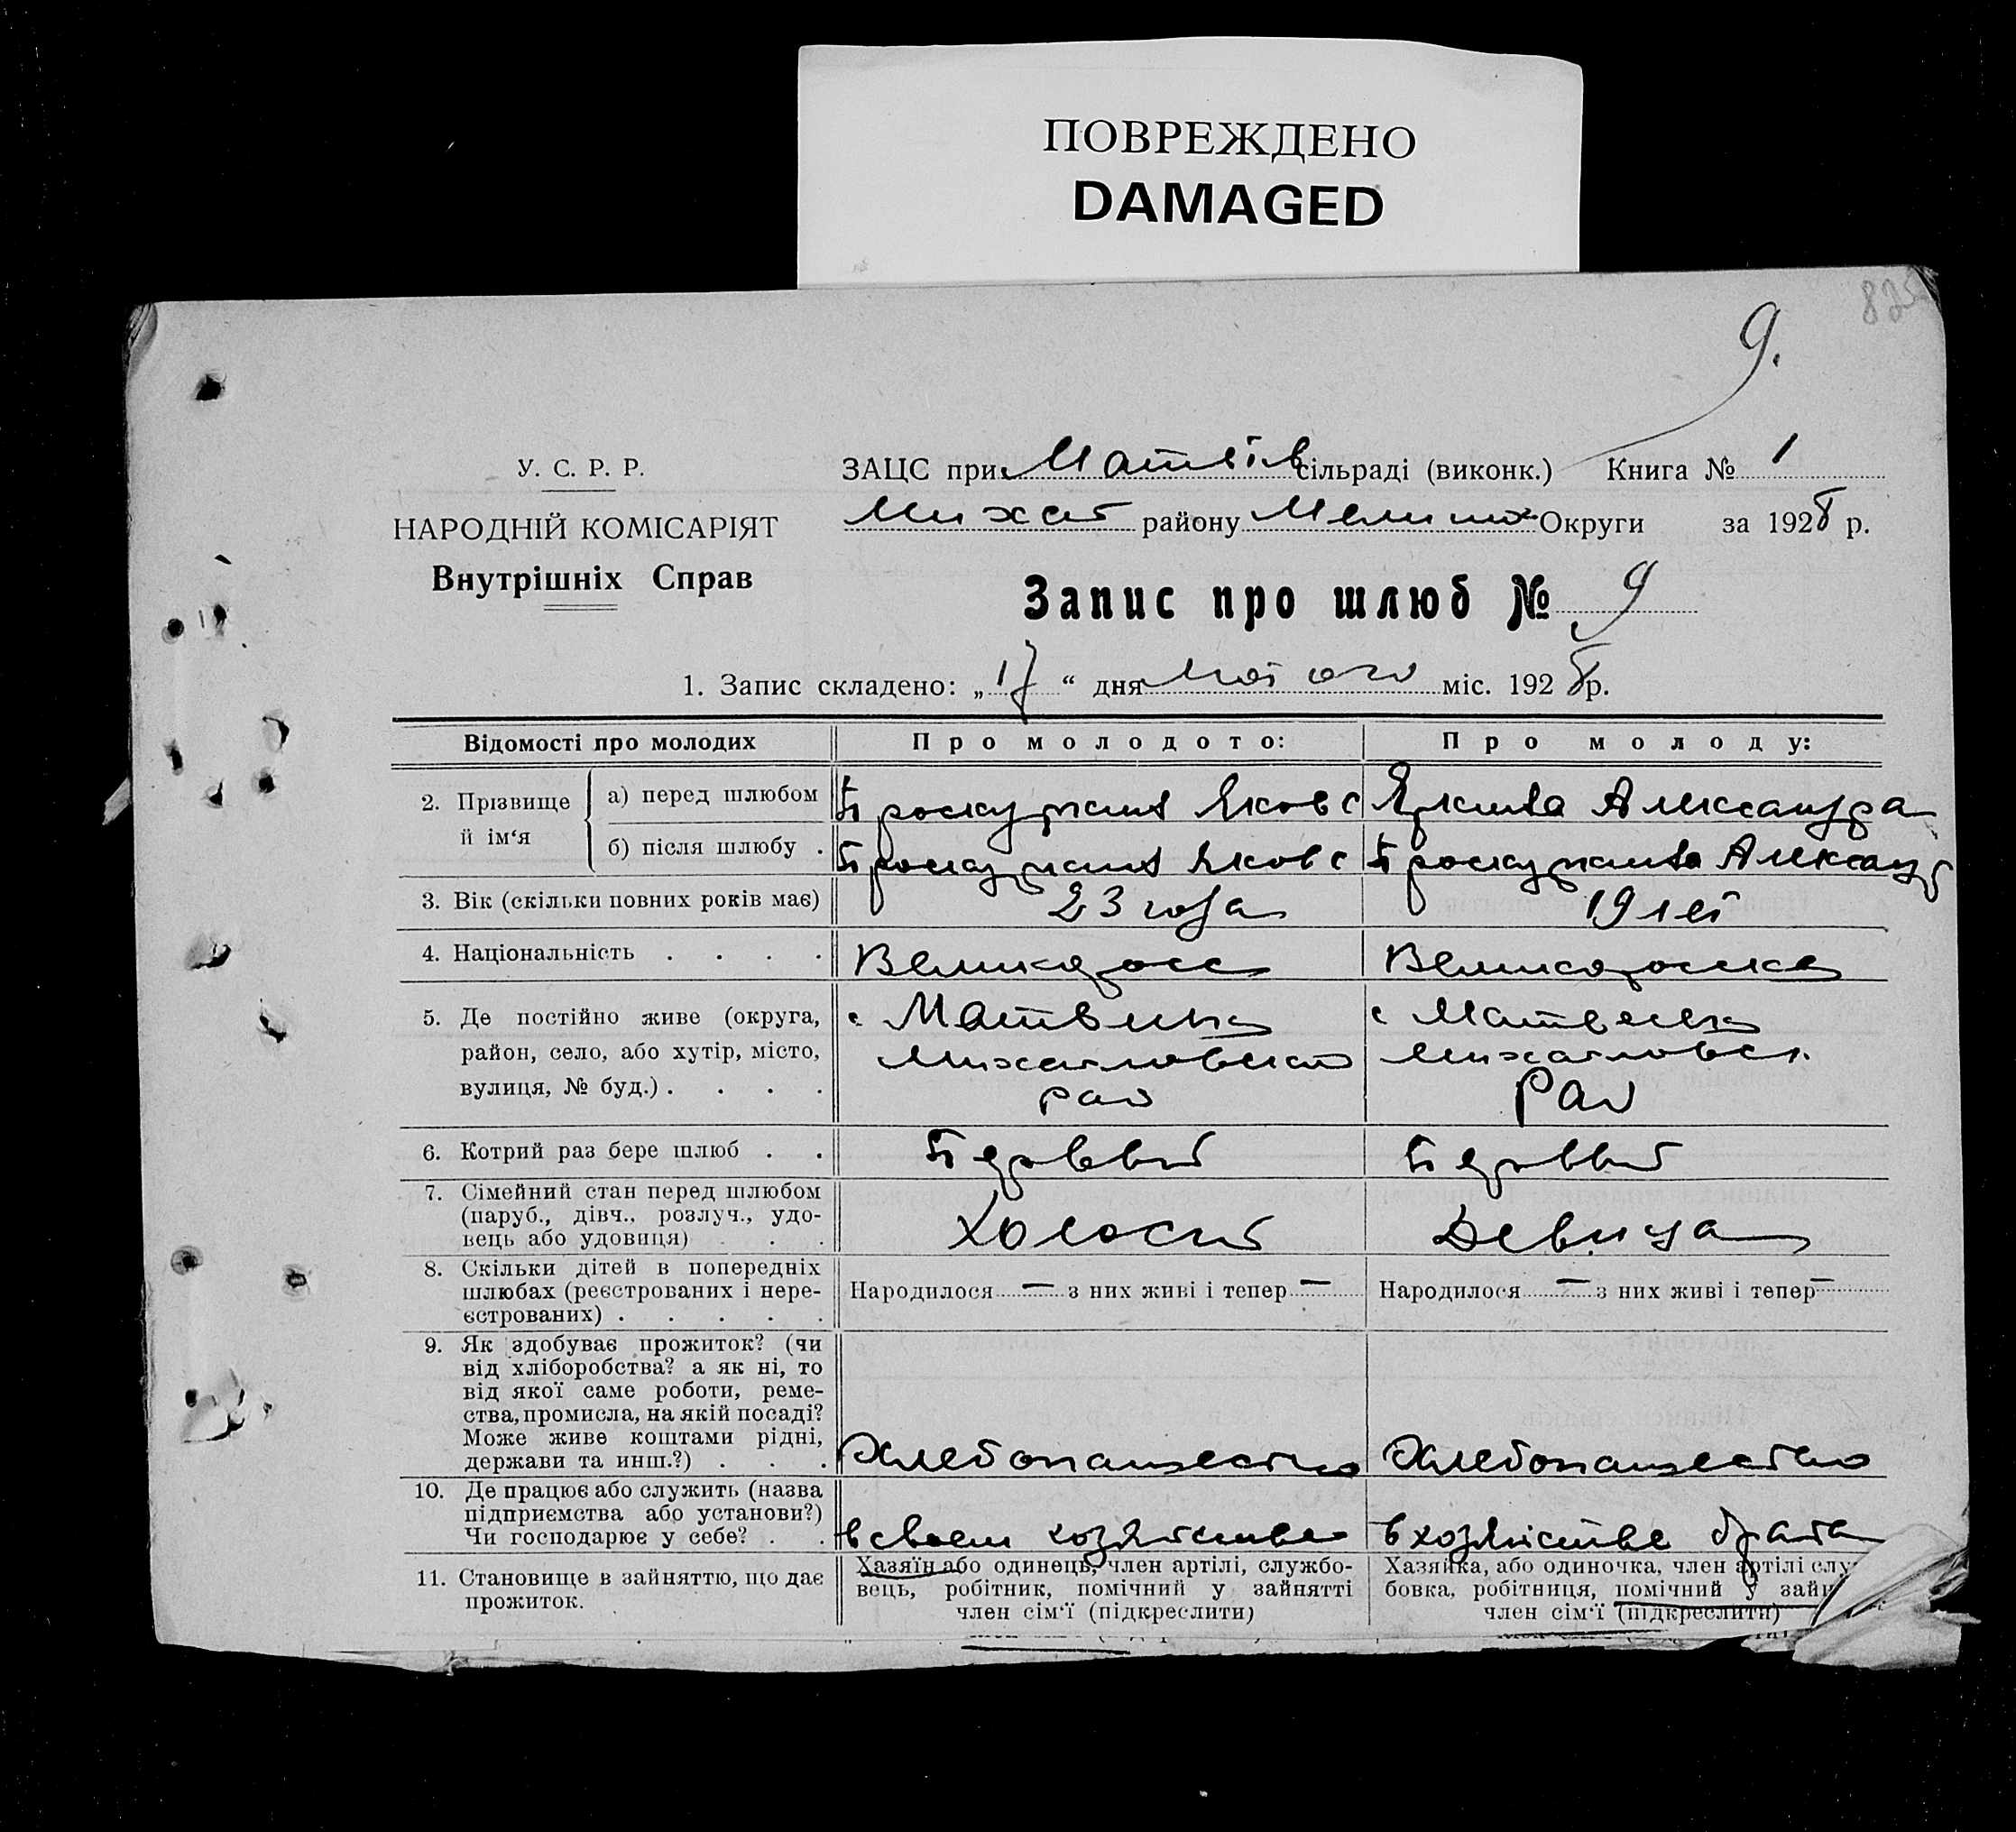 ПОВРЕЖДЕНО
DAMAGED
9.
У. С. Р. Р.
НАРОДНІЙ КОМІСАРІЯТ
Внутрішніх Справ
ЗАЦС при Матвіїв сільраді (виконк.) Книга № 1
Михайл району Мелитоп Округи за 1928 р.
Запис про шлюб № 9
1. Запис складено: „17“ дня міс. 1928 р.
Відомості про молодих Про молодого: Про молоду:
2. Прізвище й ім‘я
а) перед шлюбом Проскурнин Яков Александра
б) після шлюбу . Проскурнин Яков Проскурнина Александр
3. Вік (скільки повних років має) 23 года 19 лет
4. Національність . . . . Великоросс Великоросска
5. Де постійно живе (округа, с Матвеевка с Матвеевка
район, село, або хутір, місто, Михайловского Михайловск.
вулиця, № буд.) . . . . рай Рай
6. Котрий раз бере шлюб . . Первый Первый
7. Сімейний стан перед шлюбом
(паруб., дівч., розлуч., удо-
вець або удовиця) . . . Холостой Девица
8. Скільки дітей в попередніх
шлюбах (реєстрованих і нере- Народилося — з них живі і тепер — Народилося — з них живі і тепер —
єстрованих) . . . . .
9. Як здобуває прожиток? (чи
від хліборобства? а як ні, то
від якої саме роботи, реме-
ства, промисла, на якій посаді?
Може живе коштами рідні,
держави та инш.?) . . . Хлебопашество Хлебопашество
10. Де працює або служить (назва
підприємства або установи?)
Чи господарює у себе? . . в своем хозяйстве в хозяйстве брата
11. Становище в зайняттю, що дає
прожиток.
Хазяїн або одинець, член артілі, службо-
вець, робітник, помічний у зайнятті
член сім‘ї (підкреслити)
Хазяйка, або одиночка, член артілі служ
бовка, робітниця, помічний у зайн
член сім‘ї (підкреслити)